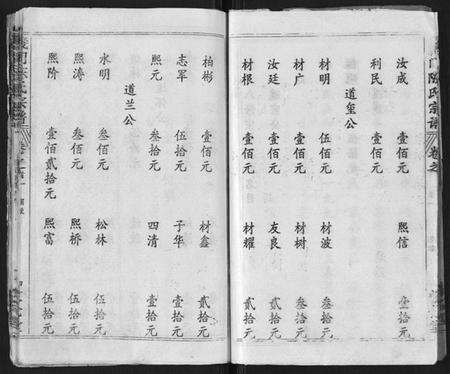 門陈氏宗譜
卷之
汝成 壹佰元 熙信 壹拾元
利民 壹佰元
道玺公
材明 伍佰元 材波 叁拾元
材广 壹佰元 材树 叁拾元
汝廷 壹佰元 友良 贰拾元
材根 壹佰元 材耀 贰拾元
柏彬 壹佰元 材鑫 贰拾元
志军 伍拾元 子华 壹拾元
熙元 叁拾元 四清 壹拾元
道兰公
水明 叁佰元 松林 伍拾元
熙涛 叁佰元 熙桥 伍拾元
熙阶 壹佰贰拾元 熙富 伍拾元